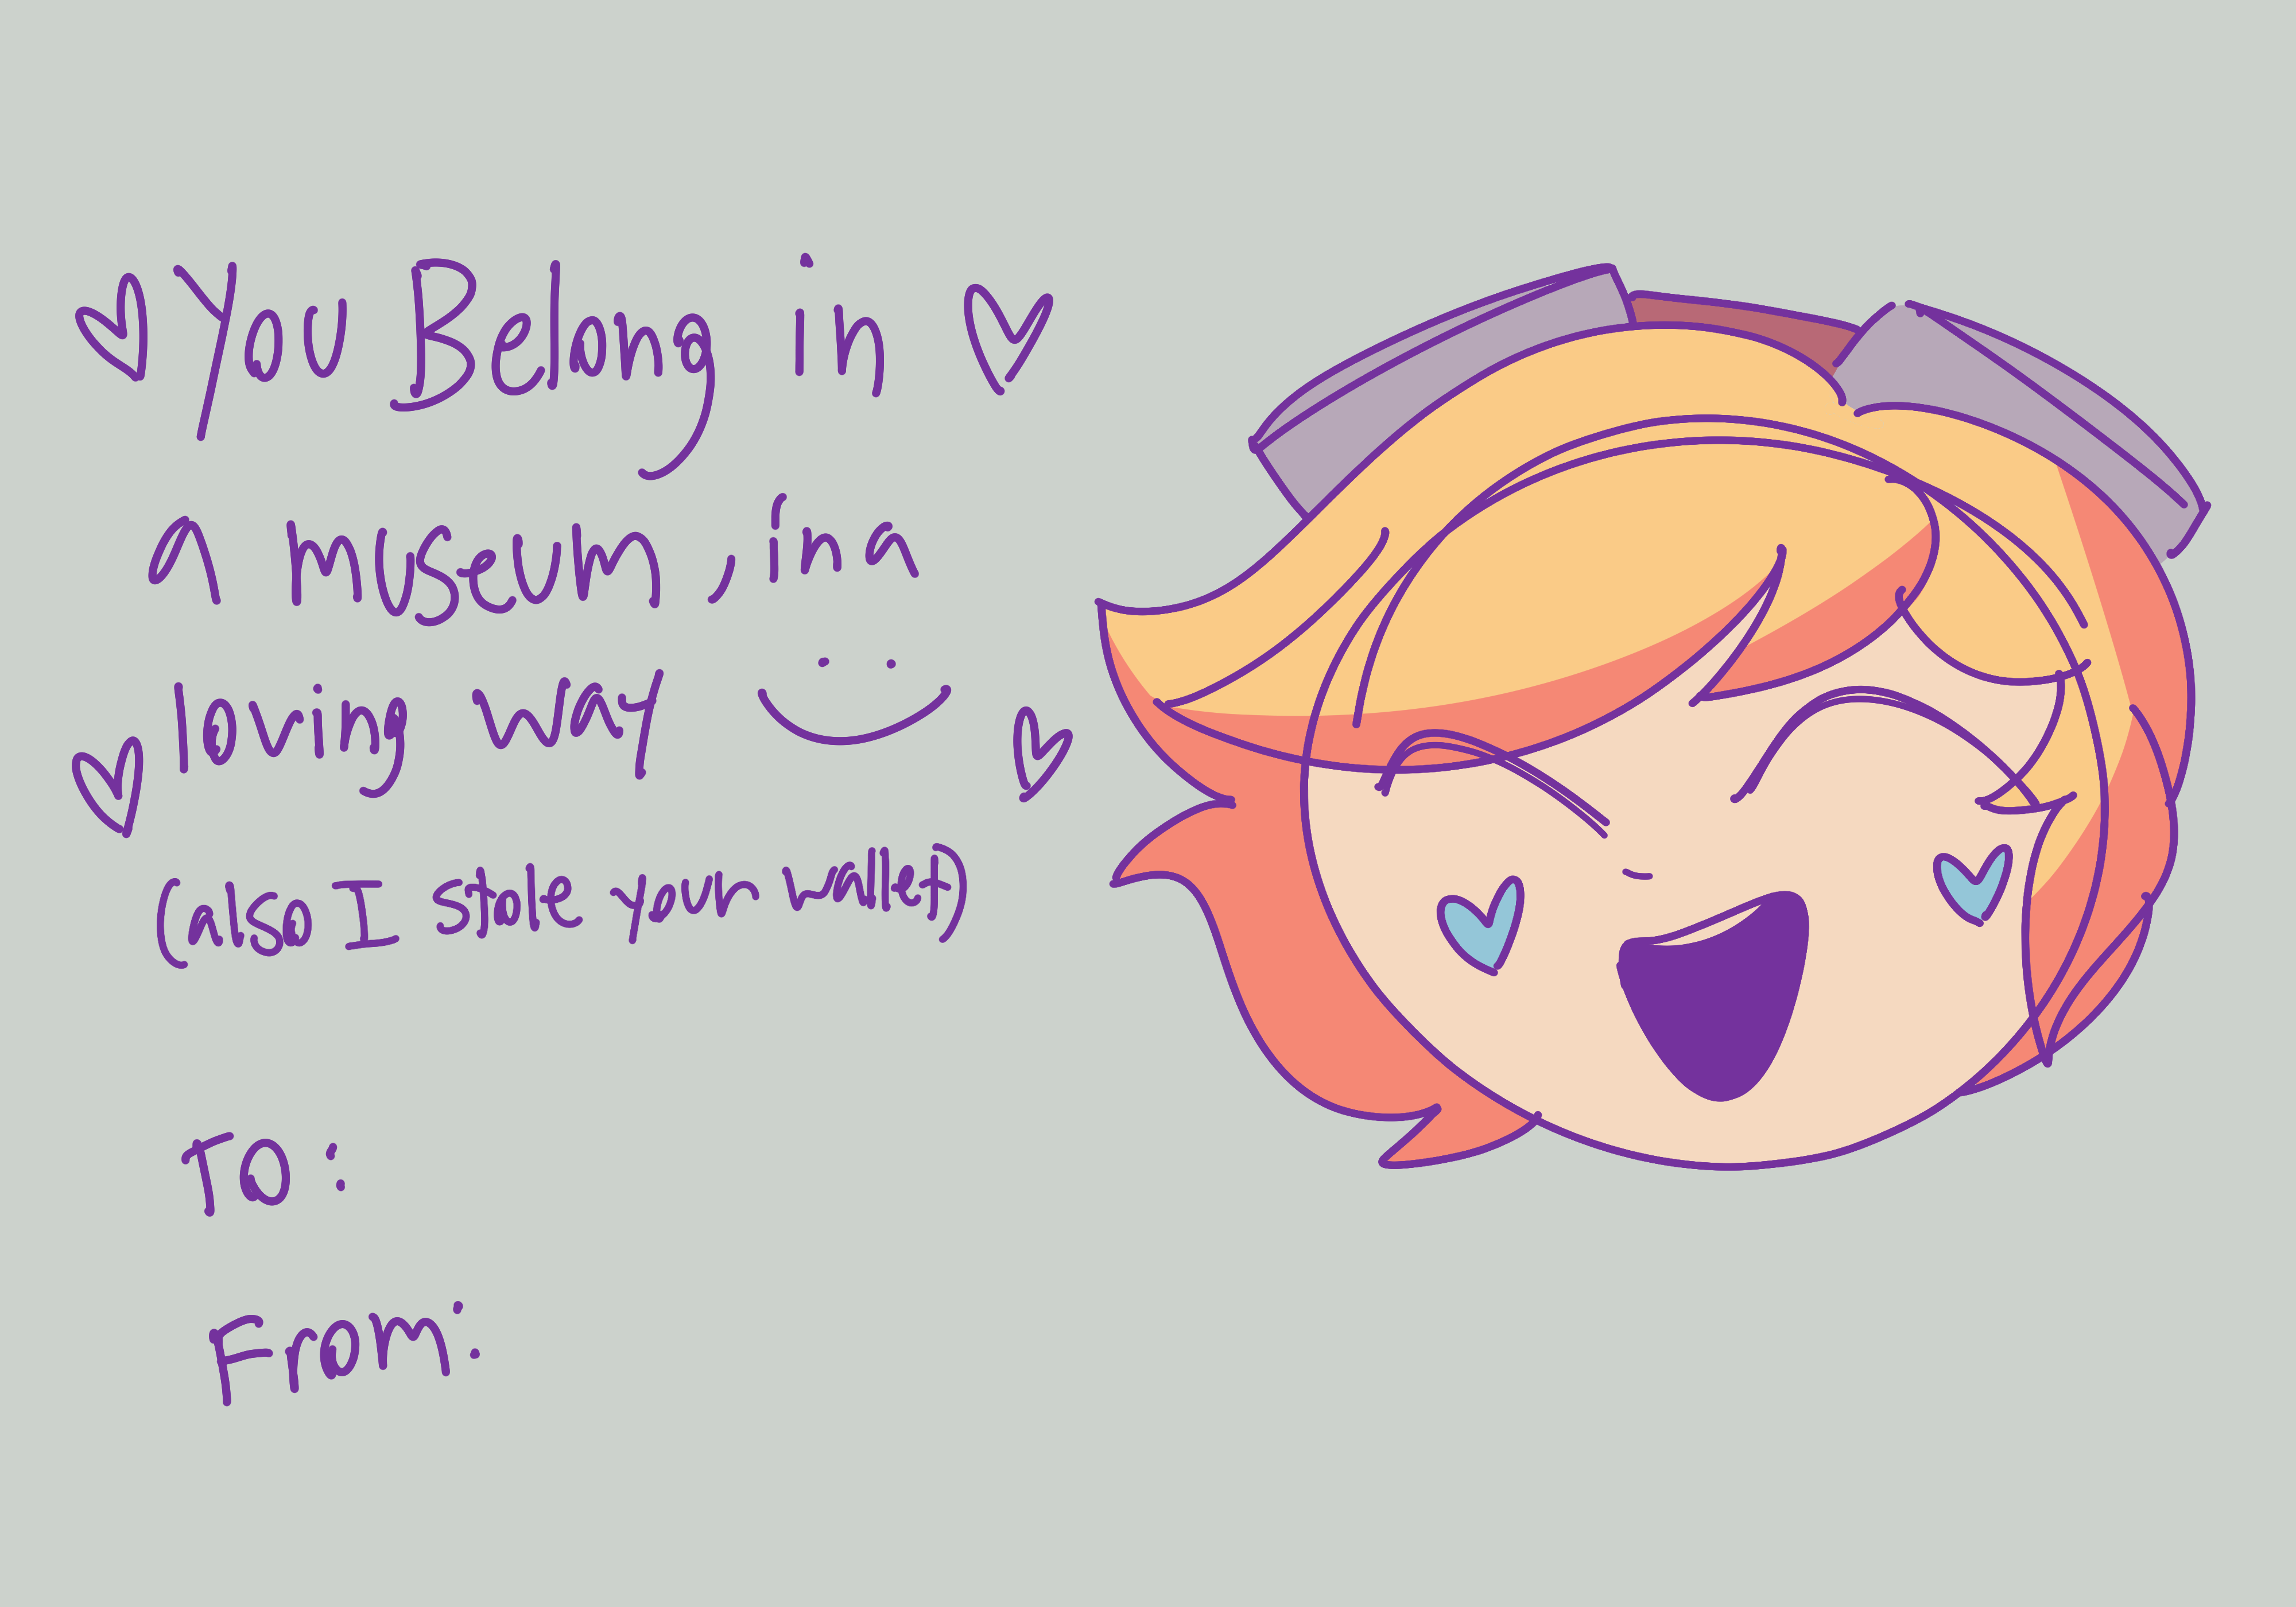 ♡You Belong in♡
a museum, in a
loving way :)
(also I stole your wallet)
To:
From: